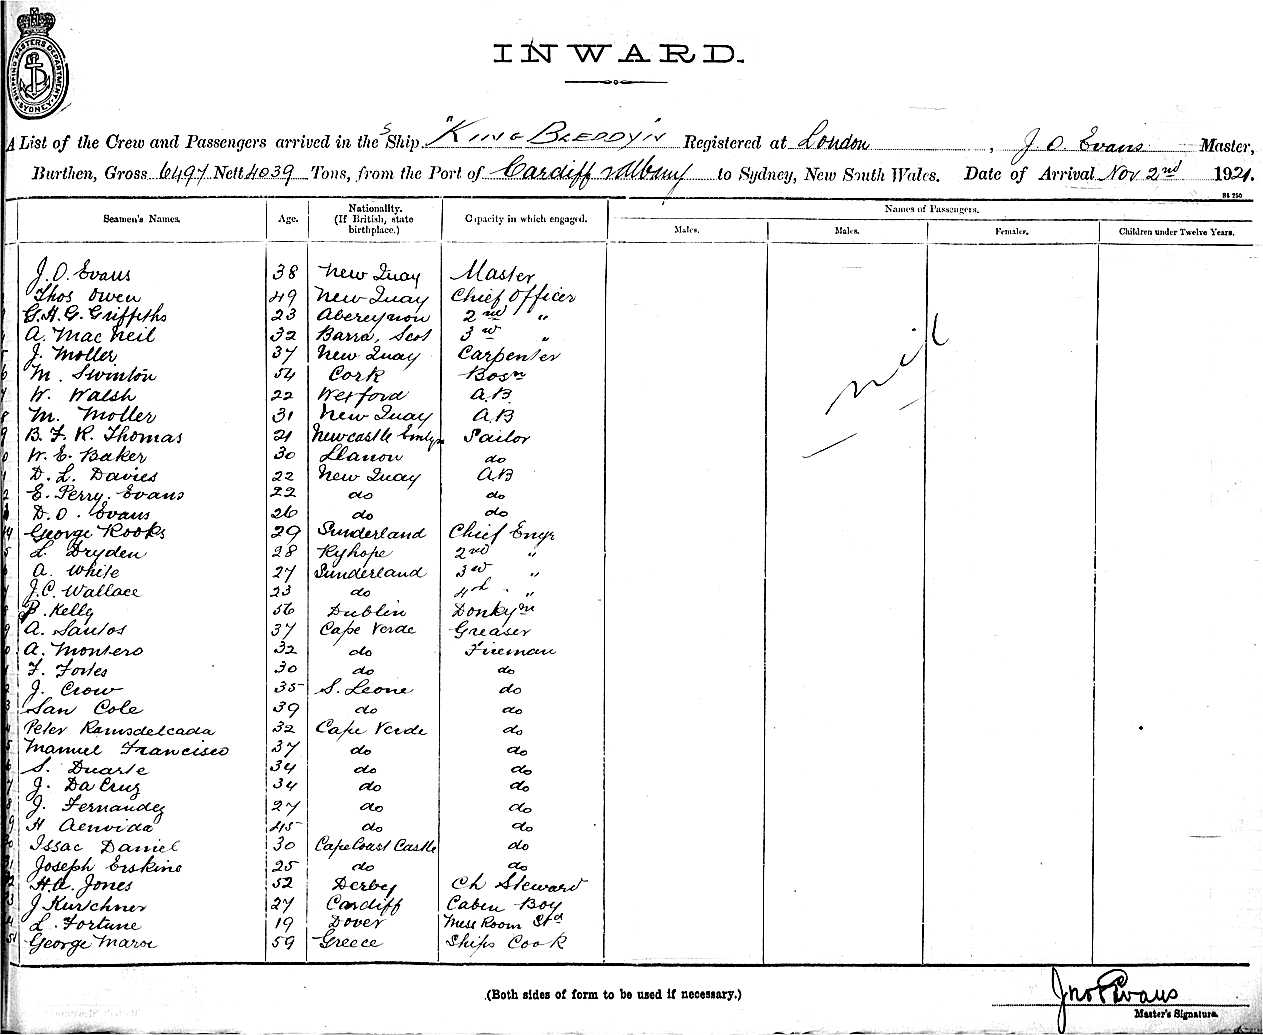 SHIPPING MASTERS DEPARTMENT SYDNEY
INWARD.
A List of the Crew and Passengers arrived in the S Ship "KING BLEDDYN" Registered at London, J. O. Evans Master,
Burthen, Gross 6497 Nett 4039 Tons, from the Port of Cardiff v Albany to Sydney, New South Wales. Date of Arrival Nov 2nd 1921.
Seamen's Names. Age. Nationality. (If British, state birthplace.) Capacity in which engaged. Names of Passengers.
Males. Males. Females. Children under Twelve Years.
J. O. Evans 38 New Quay Master
Thos Owen 49 New Quay Chief Officer
G. H. G. Griffiths 23 Abercynon 2nd "
A. Mac Neil 32 Barra, Scot 3rd "
5 J. Moller 37 New Quay Carpenter
6 M. Swinton 54 Cork Bosn
7 W. Walsh 22 Wexford A.B.
8 M. Moller 31 New Quay A.B
9 B. F. R. Thomas 21 Newcastle Emlyn Sailor
0 W. E. Baker 30 Llanon do
1 D. L. Davies 22 New Quay A.B
2 E. Perry. Evans 22 do do
3 D. O. Evans 26 do do
14 George Rooks 29 Sunderland Chief Engr
5 L. Dryden 28 Ryhope 2nd "
6 A. White 27 Sunderland 3rd "
7 J. C. Wallace 23 do 4th "
8 P. Kelly 56 Dublin Donkymn
9 A. Santos 37 Cape Verde Greaser
0 A. Montero 32 do Fireman
1 F. Fortes 30 do do
2 J. Crow 35 S. Leone do
3 San Cole 39 do do
4 Peter Ramsdelcada 32 Cape Verde do
5 Manuel Francisco 37 do do
6 S. Duarte 34 do do
7 J. Da Cruz 34 do do
8 J. Fernandez 27 do do
9 H 45 do do
30 Issac Daniel 30 Cape Coast Castle do
31 Joseph Erskine 25 do do
2 H. A. Jones 52 Derby Ch Steward
3 J Kurschner 27 Cardiff Cabin Boy
4 L. Fortune 19 Dover Mess Room Std
5 George 59 Greece Ships Cook
nil
(Both sides of form to be used if necessary.)
Jno O Evans
Master's Signature.